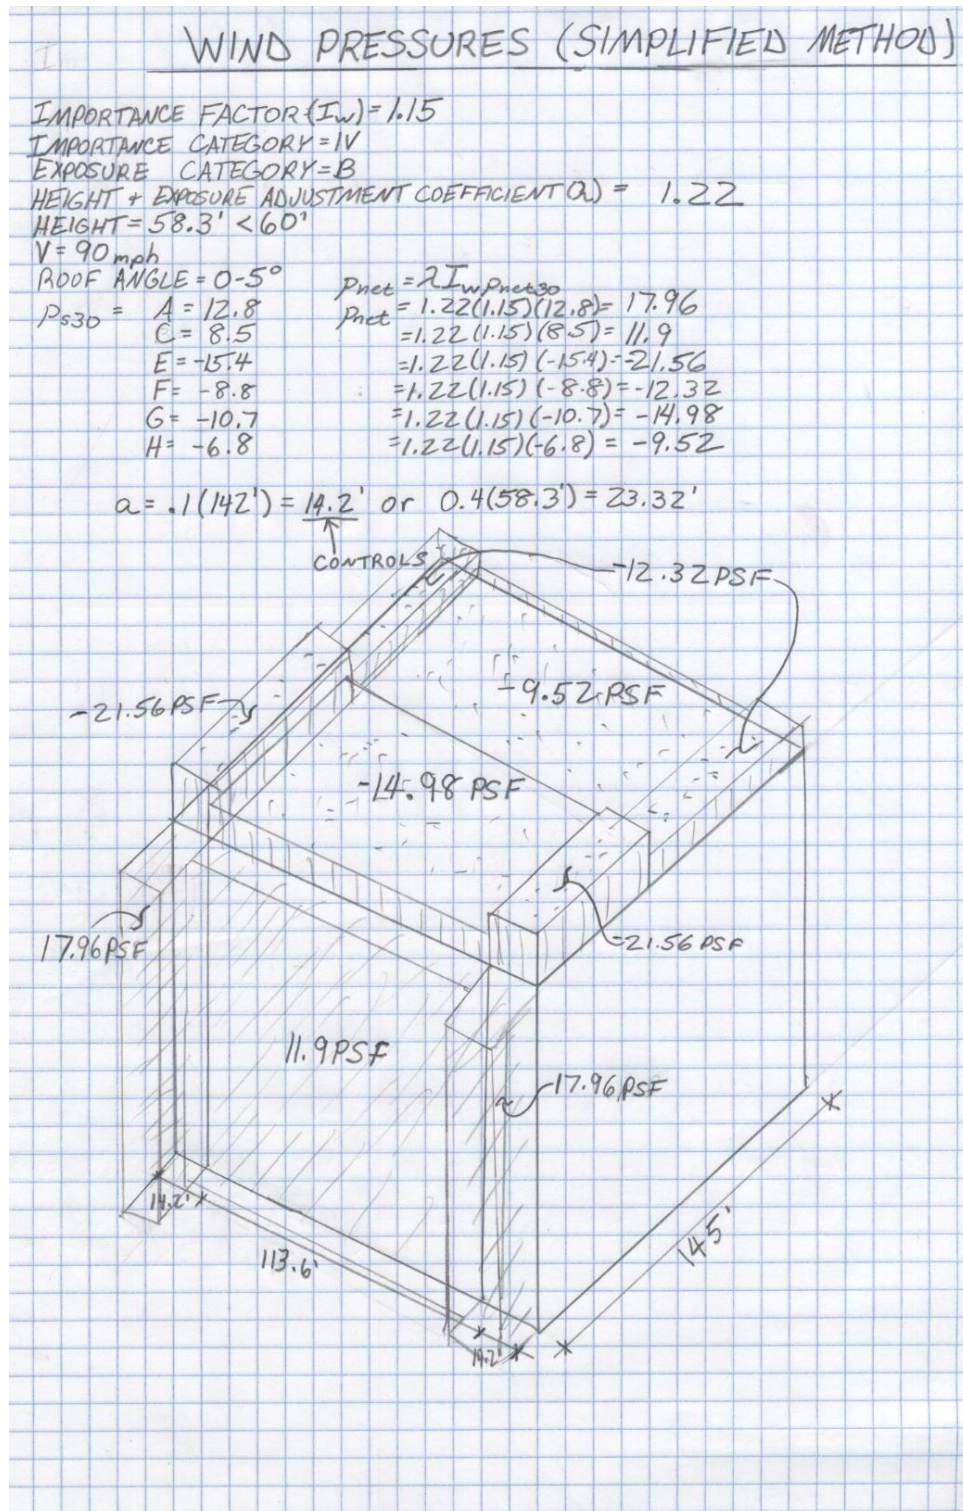 WIND PRESSURES (SIMPLIFIED METHOD)
IMPORTANCE FACTOR (Iw) = 1.15
IMPORTANCE CATEGORY = IV
EXPOSURE CATEGORY = B
HEIGHT + EXPOSURE ADJUSTMENT COEFFICIENT (λ) = 1.22
HEIGHT = 58.3' < 60'
V = 90 mph
ROOF ANGLE = 0-5°
Pnet = λIwPnet30
Ps30 = A = 12.8
Pnet = 1.22(1.15)(12.8) = 17.96
C = 8.5
=1.22(1.15)(8.5) = 11.9
E = -15.4
=1.22(1.15)(-15.4) = -21.56
F = -8.8
=1.22(1.15)(-8.8) = -12.32
G = -10.7
=1.22(1.15)(-10.7) = -14.98
H = -6.8
=1.22(1.15)(-6.8) = -9.52
a = .1(142') = 14.2' or 0.4(58.3') = 23.32'
CONTROLS
-12.32 PSF
-9.52 PSF
-21.56 PSF
-14.98 PSF
17.96 PSF
-21.56 PSF
11.9 PSF
17.96 PSF
14.2'
113.6'
14.2'
145'